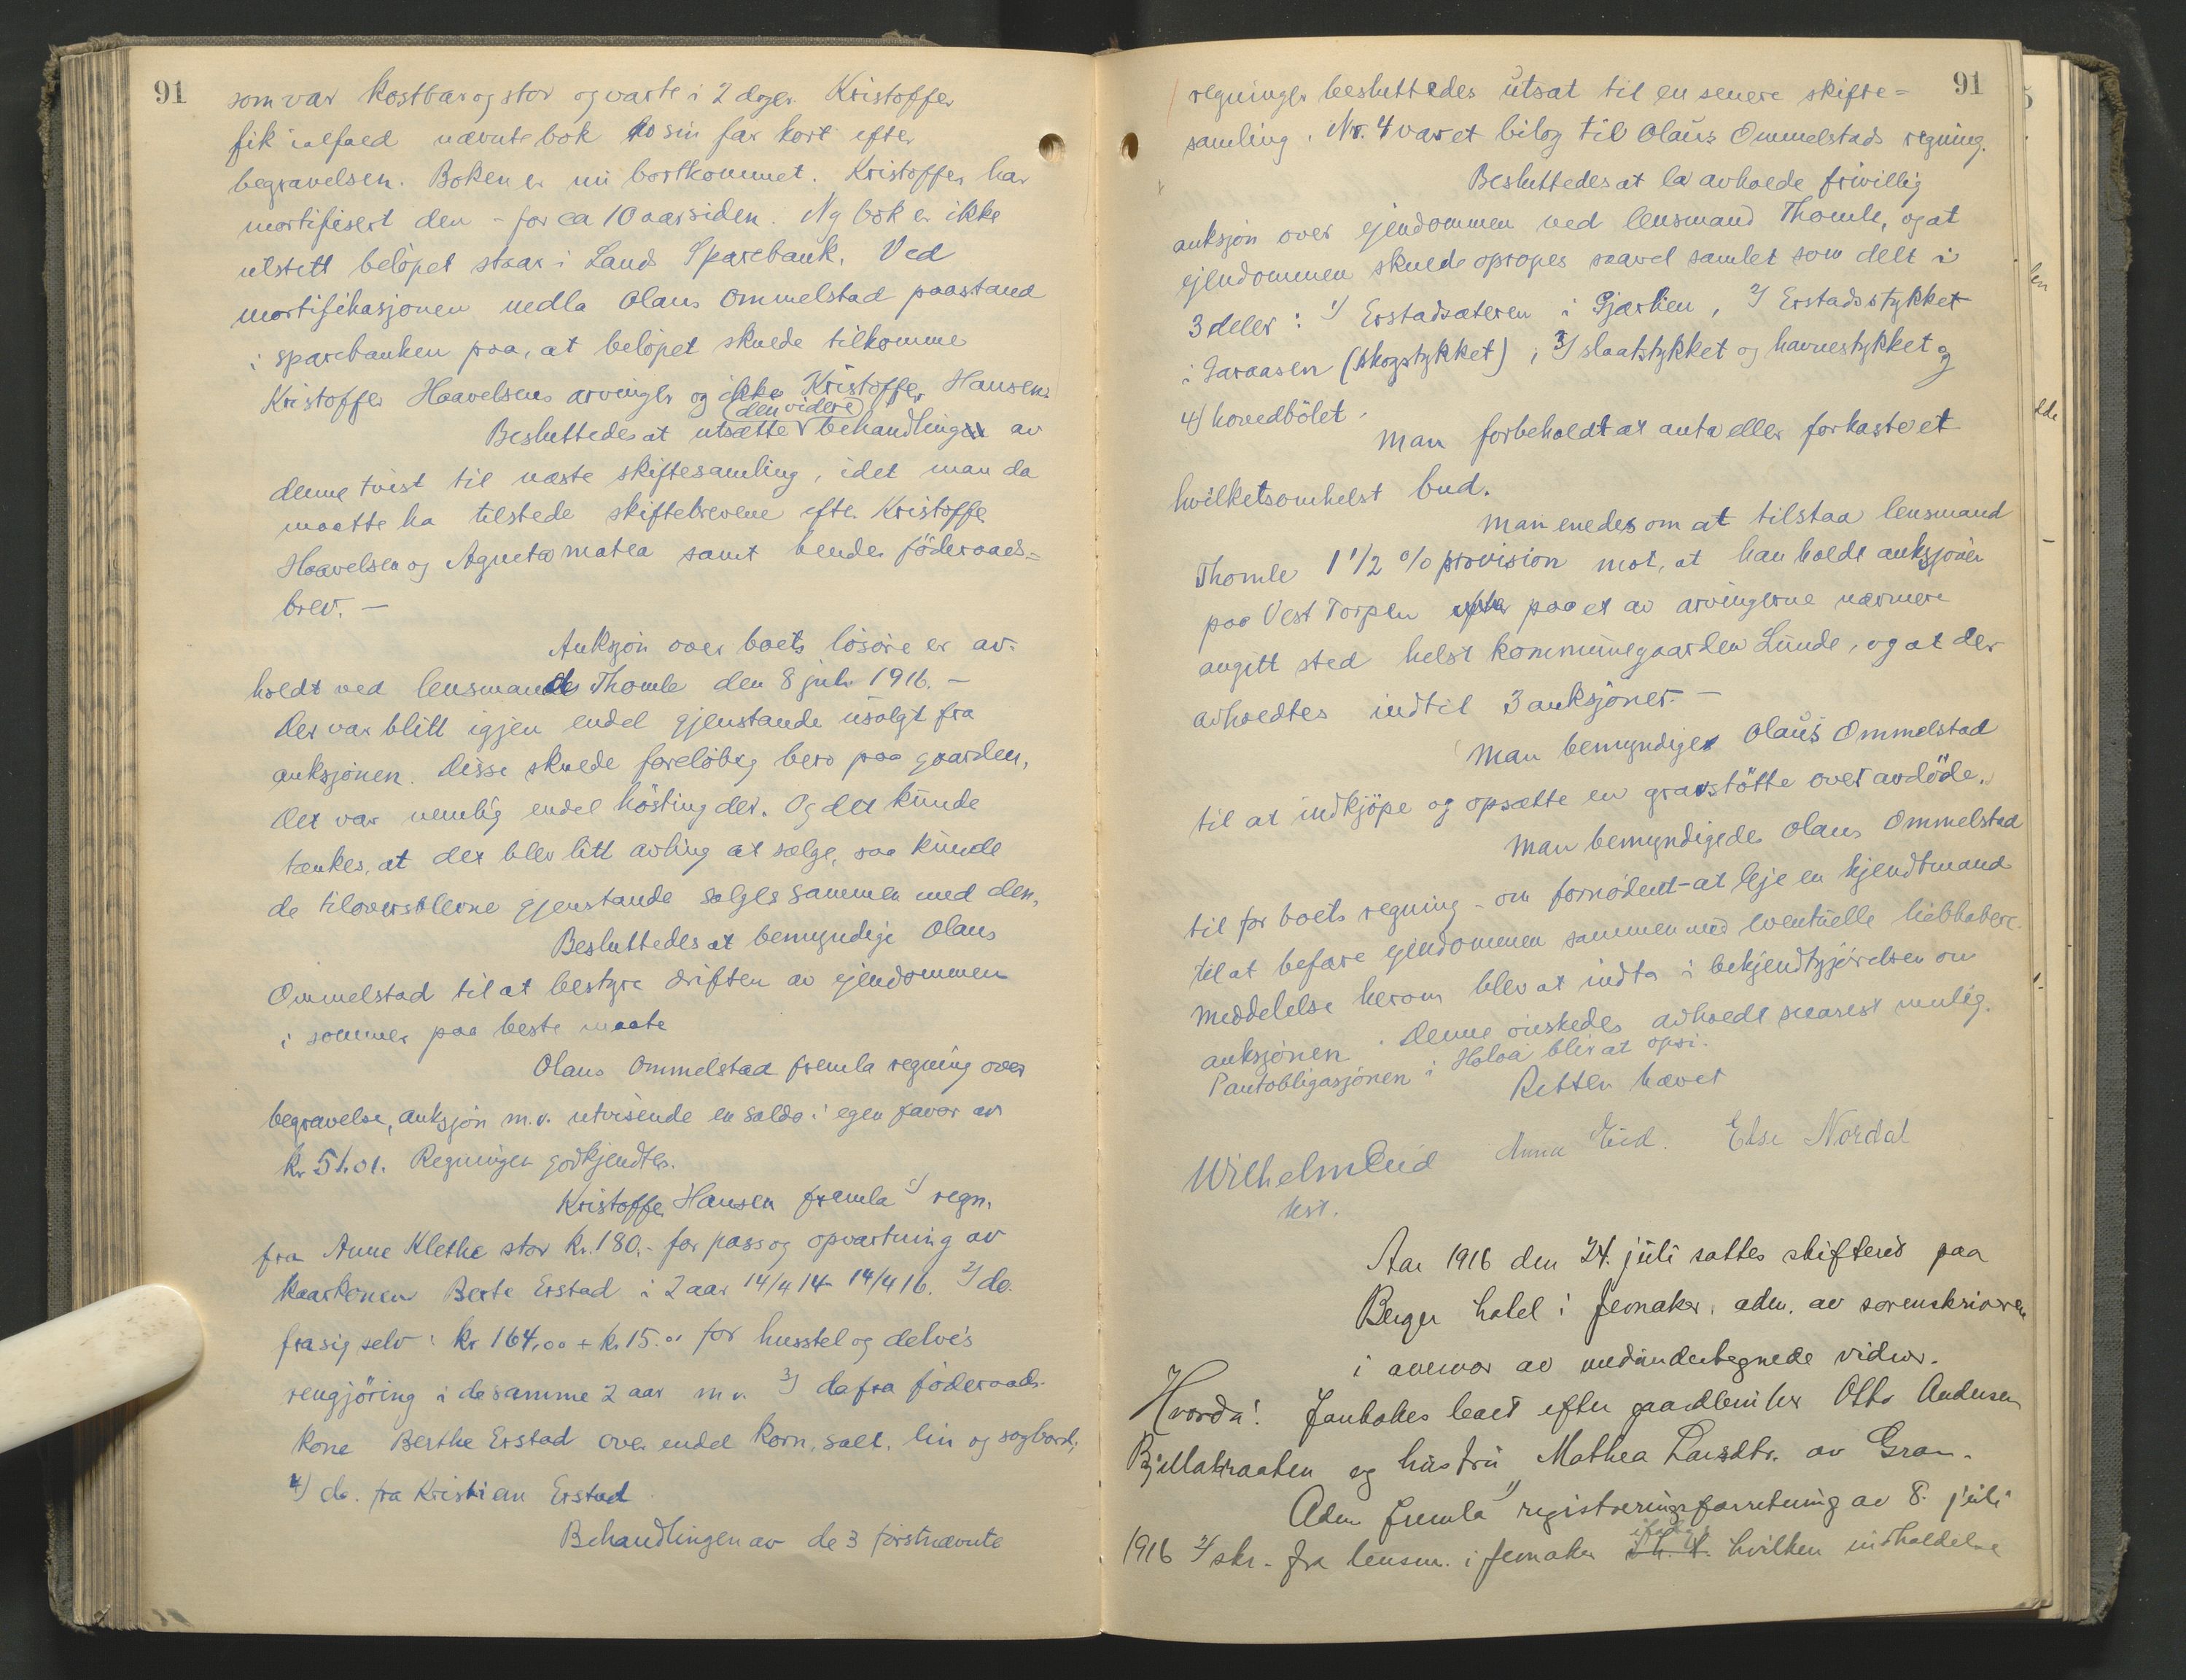 91
som var kostbar og stor og varte i 2 dager. Kristoffer
fik ialfald nævnte bok to sin far kort efter
begravelsen. Boken er nu bortkommet. Kristoffer har
mortifisert den - for ca 10 aar siden. Ny bok er ikke
utstett beløpet staar i Lands Sparebank. Ved
mortifikasjonen nedla Olaus Ommelstad paastand
i sparebanken paa, at beløpet skulde tilkomme
Kristoffer Haavelsens arvinger og ikke Kristoffer Hansen.
Besluttedes at utsætte (den videre) behandlingen av
denne tvist til næste skiftesamling, idet man da
maatte ha tilstede skiftebrevene efter Kristoffer
Haavelsen og Agneta Matea samt hendes föderaads=
brev. —
Auksjon over boets løsøre er av-
holdt ved lensmand Thomle den 8 juli 1916. —
Der var blitt igjen endel gjenstande usolgt fra
auksjonen. Disse skulde foreløbig bero paa gaarden,
det var nemlig endel høsting der. Og det kunde
tænkes, at det blev litt avling at sælge, saa kunde
de tiloversblevne gjenstande sælges sammen med den.
Besluttedes at bemyndige Olaus
Ommelstad til at bestyre driften av ejendommen
i sommer paa beste maate
Olaus Ommelstad fremla regning over
begravelse, auksjon m.v. utvisende en saldo i egen favør av
kr 51.01. Regningen godkjendtes.
Kristoffer Hansen fremla 1) regn.
fra Anne Klethe stor kr. 180,- for pass og opvartning av
kaarkonen Berte Erstad i 2 aar 14/4 14 - 14/4 16. 2) do.
fra sig selv: kr 164,00 + kr. 15.00 for husstel og delvis
rengjöring i de samme 2 aar m.v. 3) do fra føderaads-
kone Berthe Erstad over endel korn, salt, lin og sagbord;
4) do. fra Kristian Erstad.
Behandlingen av de 3 førstnævnte
91
regninger besluttedes utsat til en senere skifte=
samling. Nr. 4 var et bilag til Olaus Ommelstads regning.
Besluttedes at la avholde frivillig
auksjon over ejendommen ved lensmand Thomle, og at
ejendommen skulde opropes saavel samlet som delt i
3 deler: 1) Erstadsæteren i Gjærlien, 2) Erstadsstykket
i Garaasen (skogstykket); 3) slaatstykket og havnestykket og
4) hovedbölet.
Man forbeholdt at anta eller forkaste et
hvilketsomhelst bud.
Man enedes om at tilstaa lensmand
Thomle 1 1/2 % provision mot, at han holdt auksjonen
paa Vest Torpen paa et av arvingerne nærmere
angitt sted helst kommunegaarden Lunde, og at der
avholdtes indtil 3 auksjoner. —
Man bemyndiget Olaus Ommelstad
til at indkjöpe og opsætte en gravstötte over avdöde.
Man bemyndigedes Olaus Ommelstad
til for boets regning - om fornødent - at leje en kjendtmand
til at befare ejendommen sammen med eventuelle liebhabere.
Meddelelse herom blev at indta i bekjendtgjørelsen om
auksjonen. Denne ønskedes avholdt snarest mulig.
Pantobligasjonen i Haloa blir at opsi.
Retten hævet
Wilhelm Eid Anna Eid. Else Nordal
kst.
Aar 1916 den 24. juli sattes skifteret paa
Berger hotel i Jevnaker, adm. av sorenskriveren
i overvær av medundertegnede vidner.
Hvorda! Foretokes boet efter gaardbruker Otto Andersen
Bjellabraaten og hustru Mathea Larsdtr. av Gran.
Adm fremla 1) registreringsforretning av 8. juli
1916 2) skr. fra lensm. i Jevnaker ifølge hvilken indholdelse